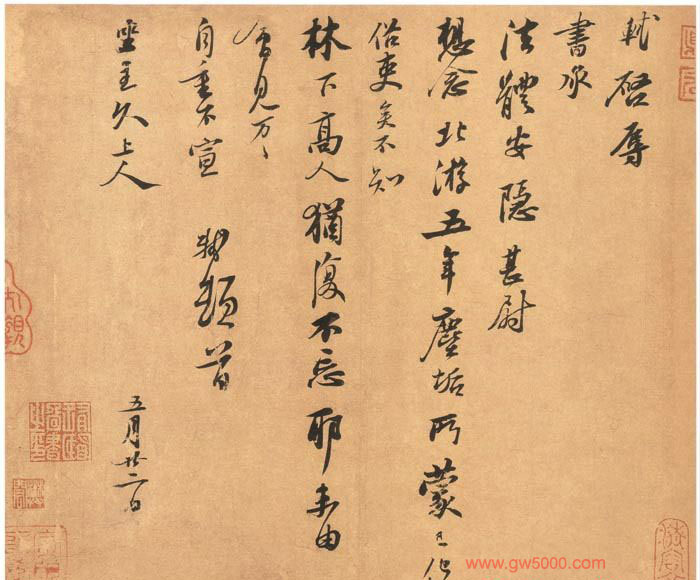 軾啓辱
書承
法體安隱甚尉
想念北游五年塵垢所蒙已
俗吏矣不知
林下高人猶復不忘耶未由
會見万〻
自重不宣 軾頓首
坐主久上人
五月廿二日
www.gw5000.com